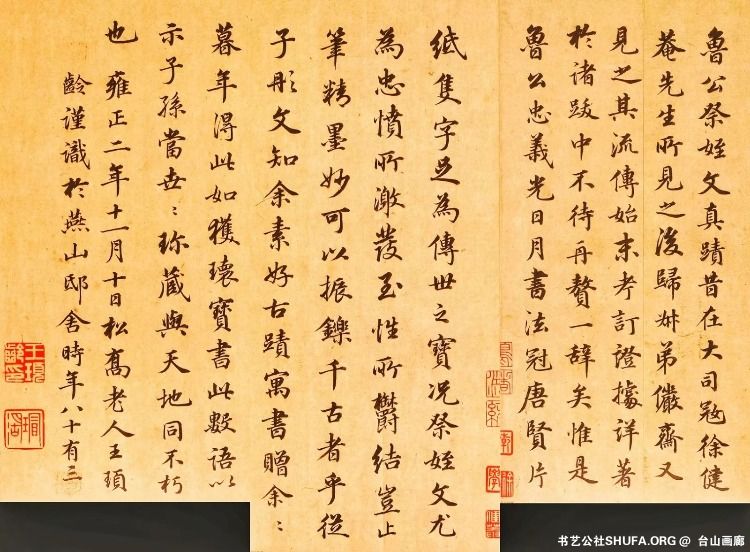 魯公祭姪文真蹟昔在大司寇徐健
菴先生所見之後歸姊弟儼齋又
見之其流傳始末考訂證據詳著
於諸跋中不待再贅一辭矣惟是
魯公忠義光日月書法冠唐賢片
紙隻字足為傳世之寶況祭姪文尤
為忠憤所激發至性所鬱結豈止
筆精墨妙可以振鑠千古者乎從
子彤文知余素好古蹟寓書贈余〻
暮年得此如獲瓌寶書此數語以
示子孫當世〻珎藏與天地同不朽
也 雍正二年十一月十日松高老人王頊
齡謹識於燕山邸舍時年八十有三
书艺公社SHUFA.ORG @ 台山画廊